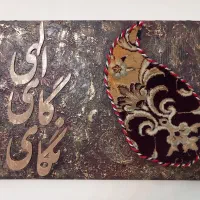 الهی
گاهی
نگاهی